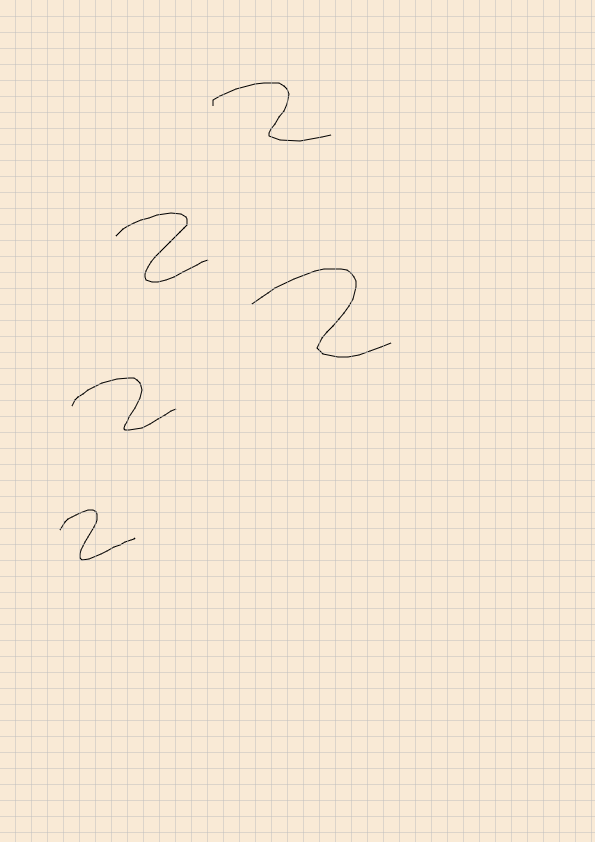 2
2
2
2
2